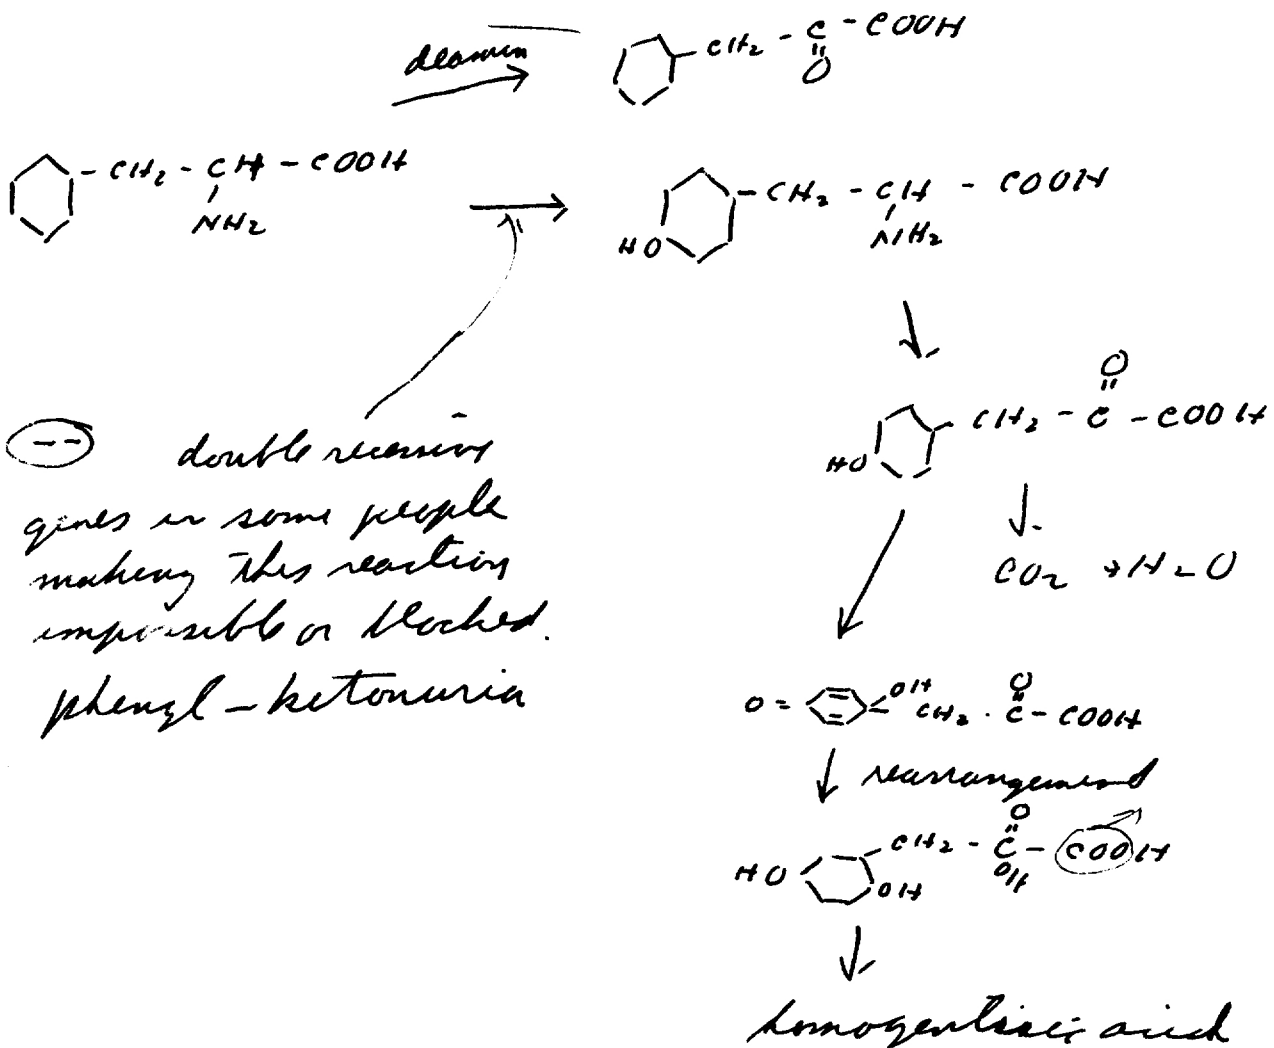 deamin
CH2 - C - COOH
O
CH2 - CH - COOH
NH2
CH2 - CH - COOH
HO
NH2
O
CH2 - C - COOH
HO
CO2 + H2O
-- double recessive
genes in some people
making this reaction
impossible or blocked.
phenyl-ketonuria
O = OH CH2 . C - COOH
O
rearrangement
O
CH2 - C - COOH
HO OH OH
homogentisic acid